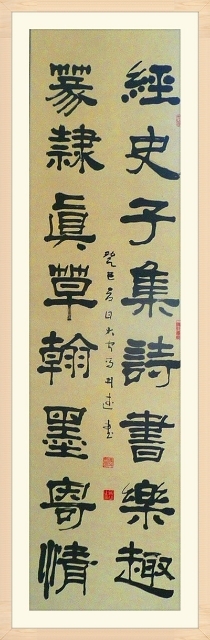 經史子集詩書樂趣
篆隸真草翰墨寄情
癸巳